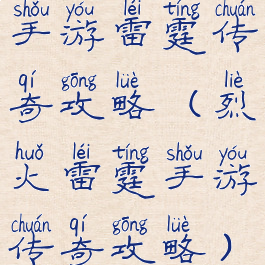 shǒu yóu léi tíng chuán
手游雷霆传
qí gōng lüè liè
奇攻略（烈
huǒ léi tíng shǒu yóu
火雷霆手游
chuán qí gōng lüè
传奇攻略）